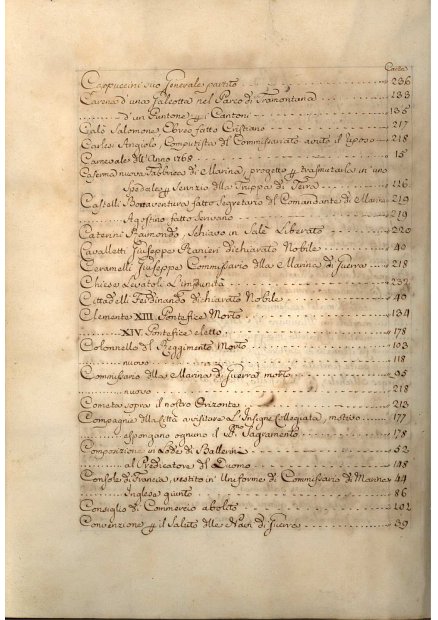 Carte
Cappuccini suo Generale partito 236
Carena d'una Galeotta nel Parco di Tramontana 133
d'un Puntone p i Cantoni 135
Calò Salomone Ebreo fatto Cristiano 217
Carlesi Angiolo, Computista di Commissariato avuto il riposo 218
Carnevale dell'Anno 1768 15
Caserma nuova Fabbrica di Marina, progetto p trasmutarla in uno
Spedale p Servizio della Truppa di Terra 126
Castelli Bonaventura fatto Segretario del Comandante di Marina 219
Agostino fatto Scrivano 219
Caterini Raimondo, Schiavo in Salè Liberato 220
Cavalletti Giuseppe Ranieri dichiarato Nobile 40
Ceramelli Giuseppe Commissario della Marina di Guerra 218
Chiese Levatoli L'Immunità 232
Cittadelli Ferdinando dichiarato Nobile 40
Clemente XIII Pontefice Morto 134
XIV Pontefice eletto 178
Colonnello del Reggimento Morto 103
nuovo 118
Commissario della Marina di Guerra morto 95
nuovo 218
Cometa sopra il nostro Orizonte 213
Compagnie della Città avvisitare L'Insigne Collegiata, motivo 177
espongano ognuno il SS. Sagramento 178
Composizione in Lode di Ballerine 52
al Predicatore del Duomo 148
Console di Francia, vestito in Uniforme di Commissario di Marina 44
Inglese giunto 86
Consiglio di Commercio abolito 102
Convenzione p il Saluto delle Navi di Guerra 39